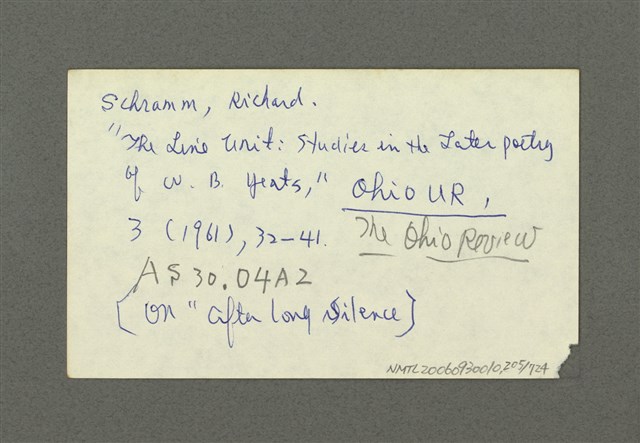 Schramm, Richard.
"The Line Unit: Studies in the Later poetry
of W. B. Yeats," Ohio UR,
3 (1961), 32-41. The Ohio Review
AS 30.04A2
[on "After long Silence]
NMTL20060930010,205/724